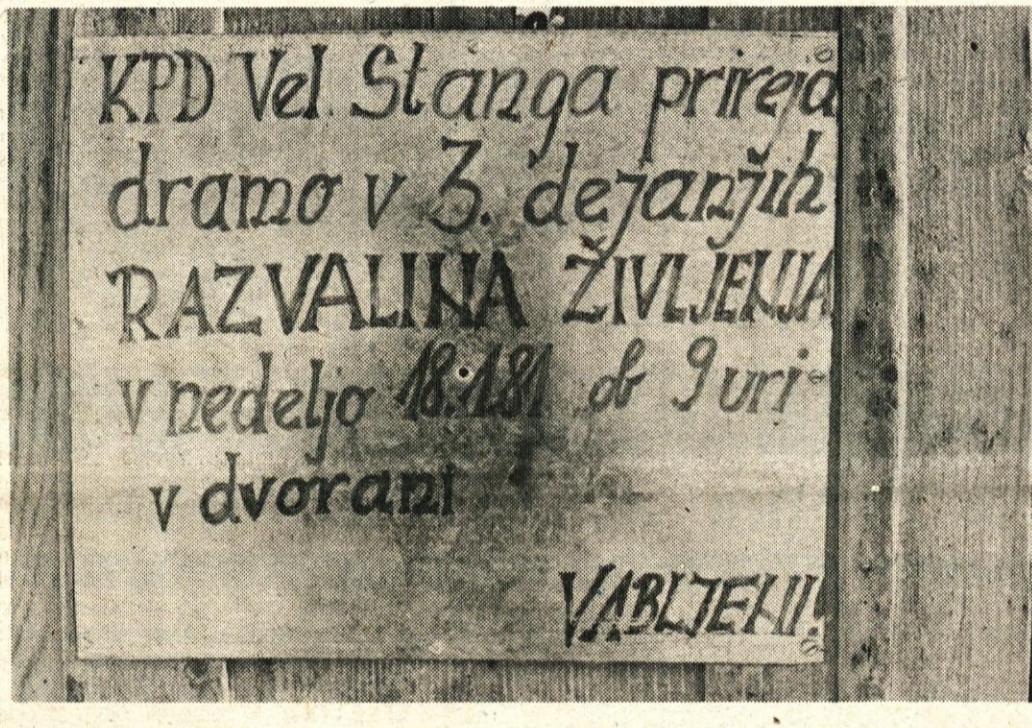 KPD Vel. Štanga prireja
dramo v 3. dejanjih
RAZVALINA ŽIVLJENJA
v nedeljo 18.1.81 ob 9 uri
v dvorani
VABLJENI!